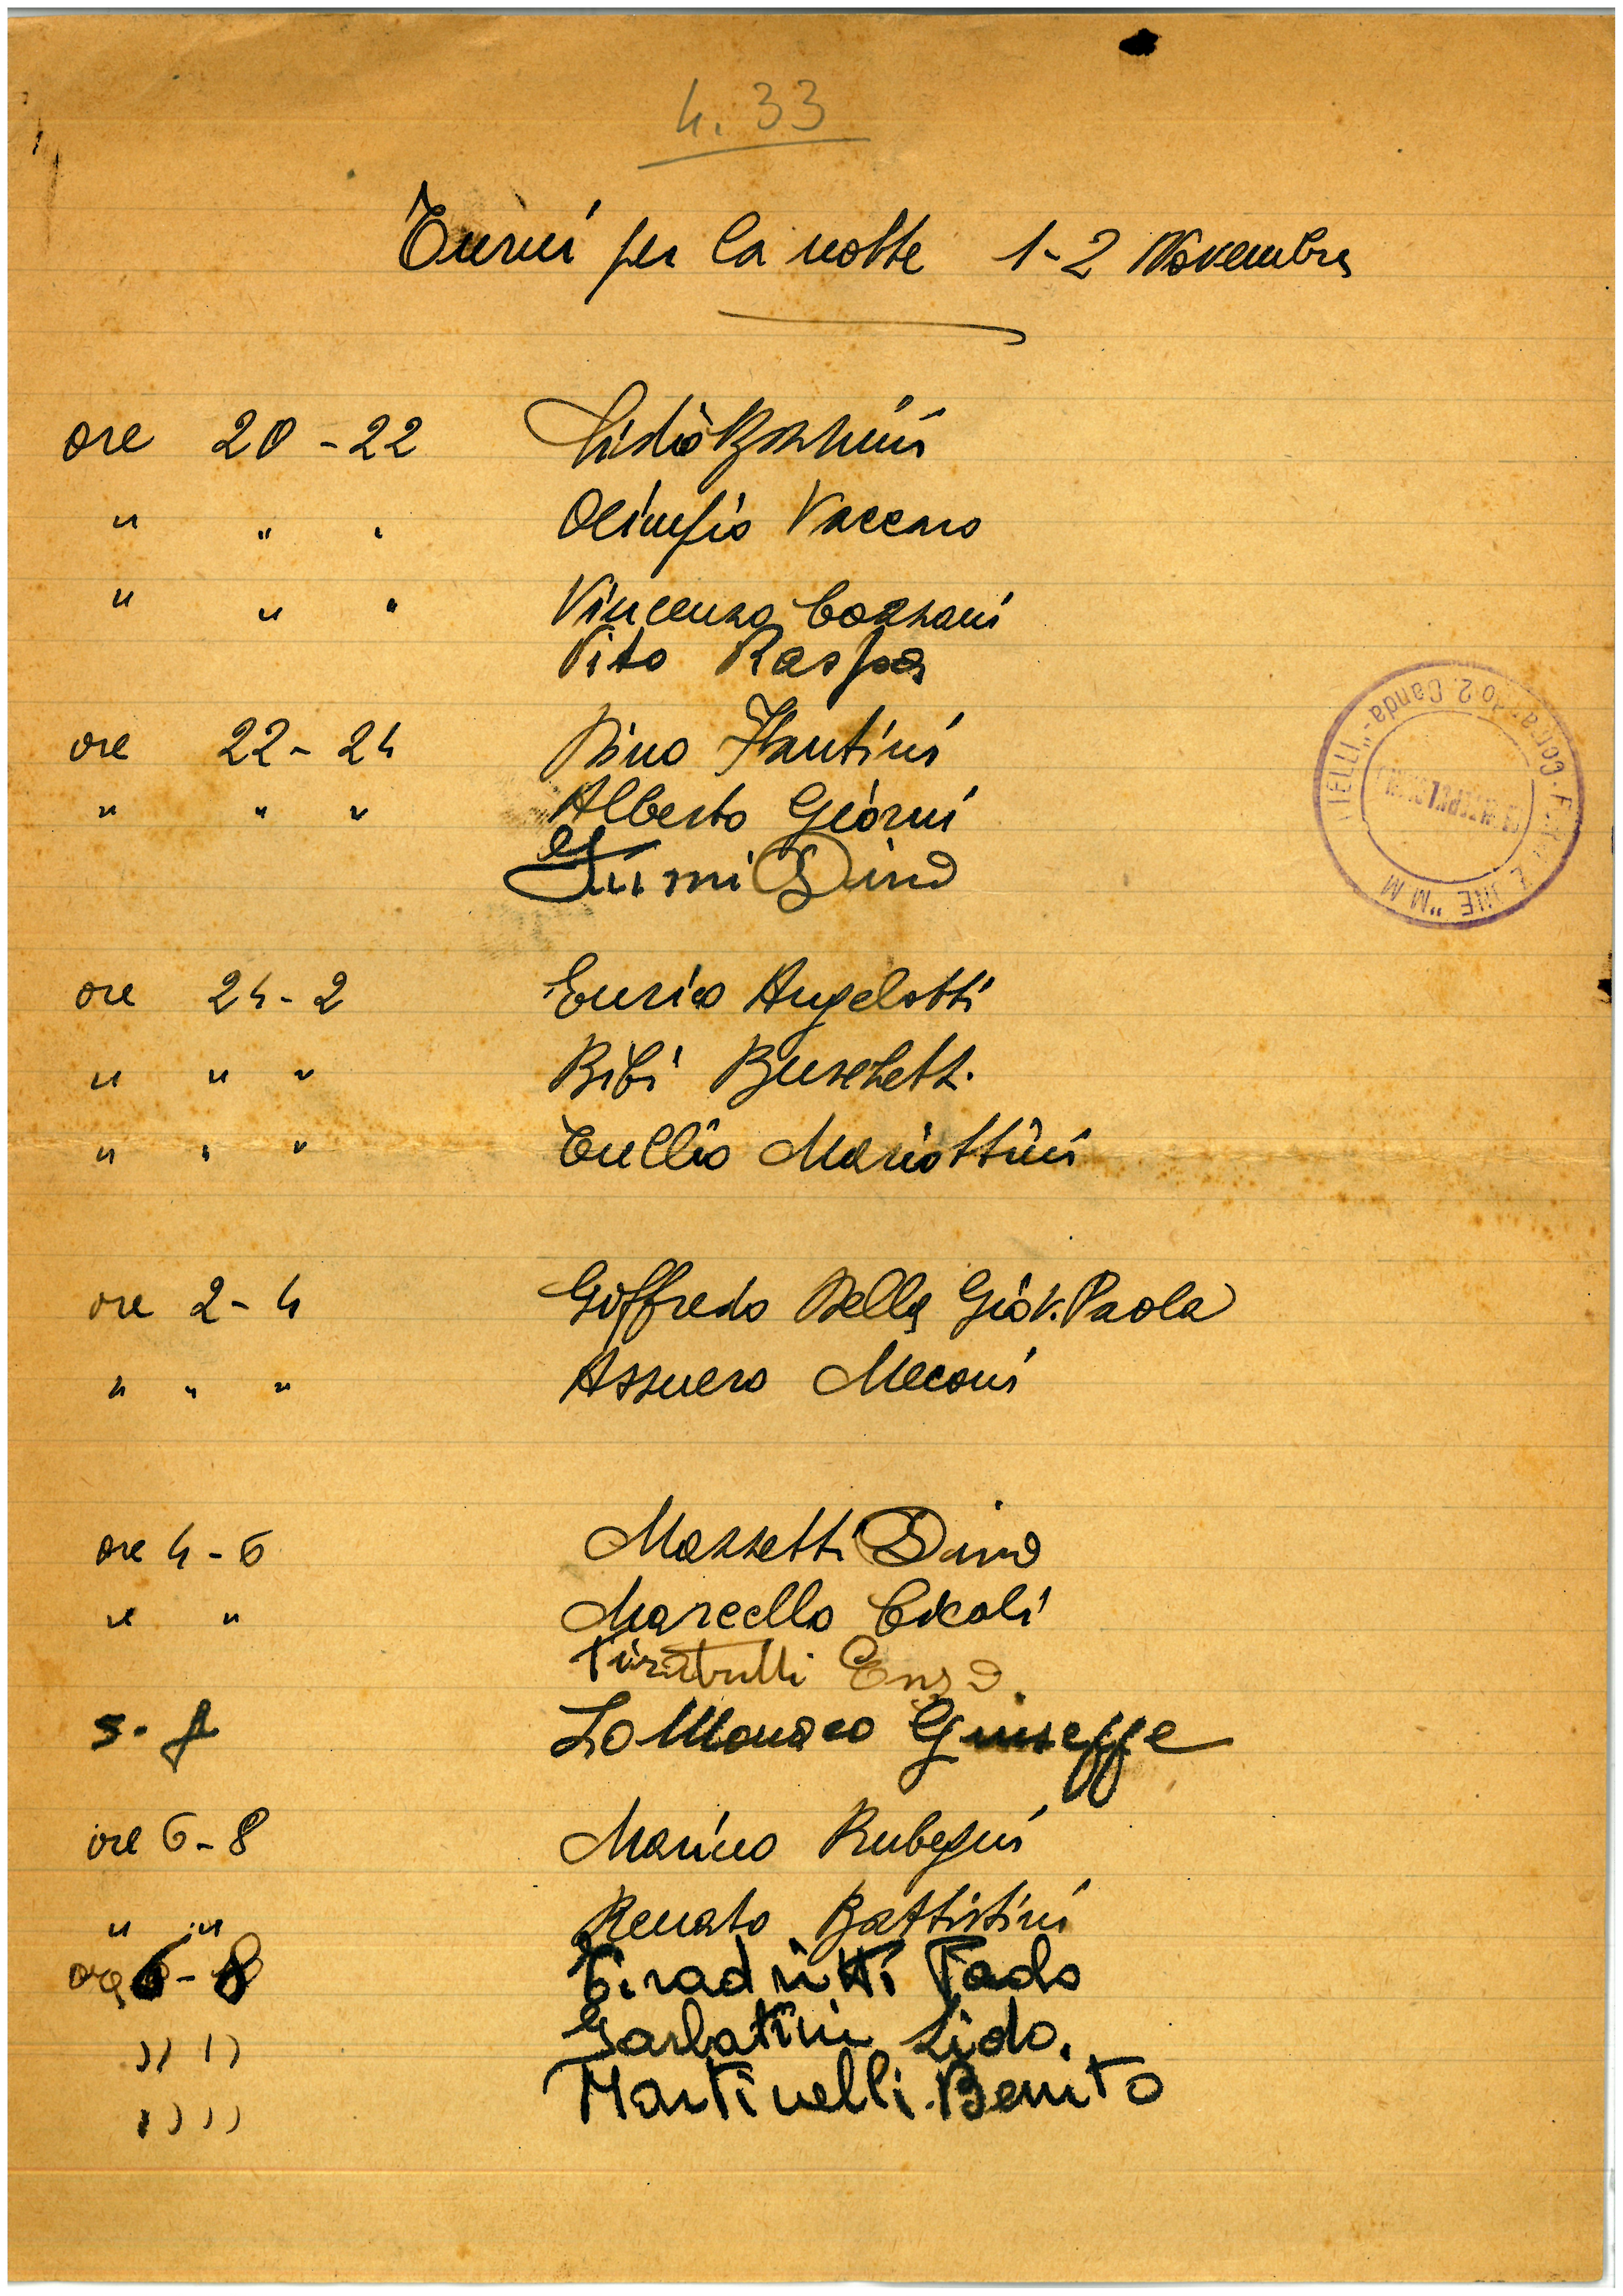 n. 33
Turni per la notte 1-2 Novembre
ore 20-22 Lidio Bozzini
" " " Olimpio Vaccaro
" " " Vincenzo Cozzani
Vito Raspa
ore 22-24 Dino Fantini
" " " Alberto Giorni
Turni Dino
ore 24-2 Enrico Angelotti
" " " Bibi Buschetti
" " " Tullio Mariottini
ore 2-4 Goffredo Della Giov. Paola
" " " Assuero Meconi
ore 4-6 Mazzetti Dino
" " Marcello Cicali
Tiratrulli Enzo.
Lo Monaco Giuseppe
ore 6-8 Marino Rubegni
" " Renato Battistini
ore 6-8 Tiradritti Fado
" " Garbatini Lido.
" " Martinelli Benito